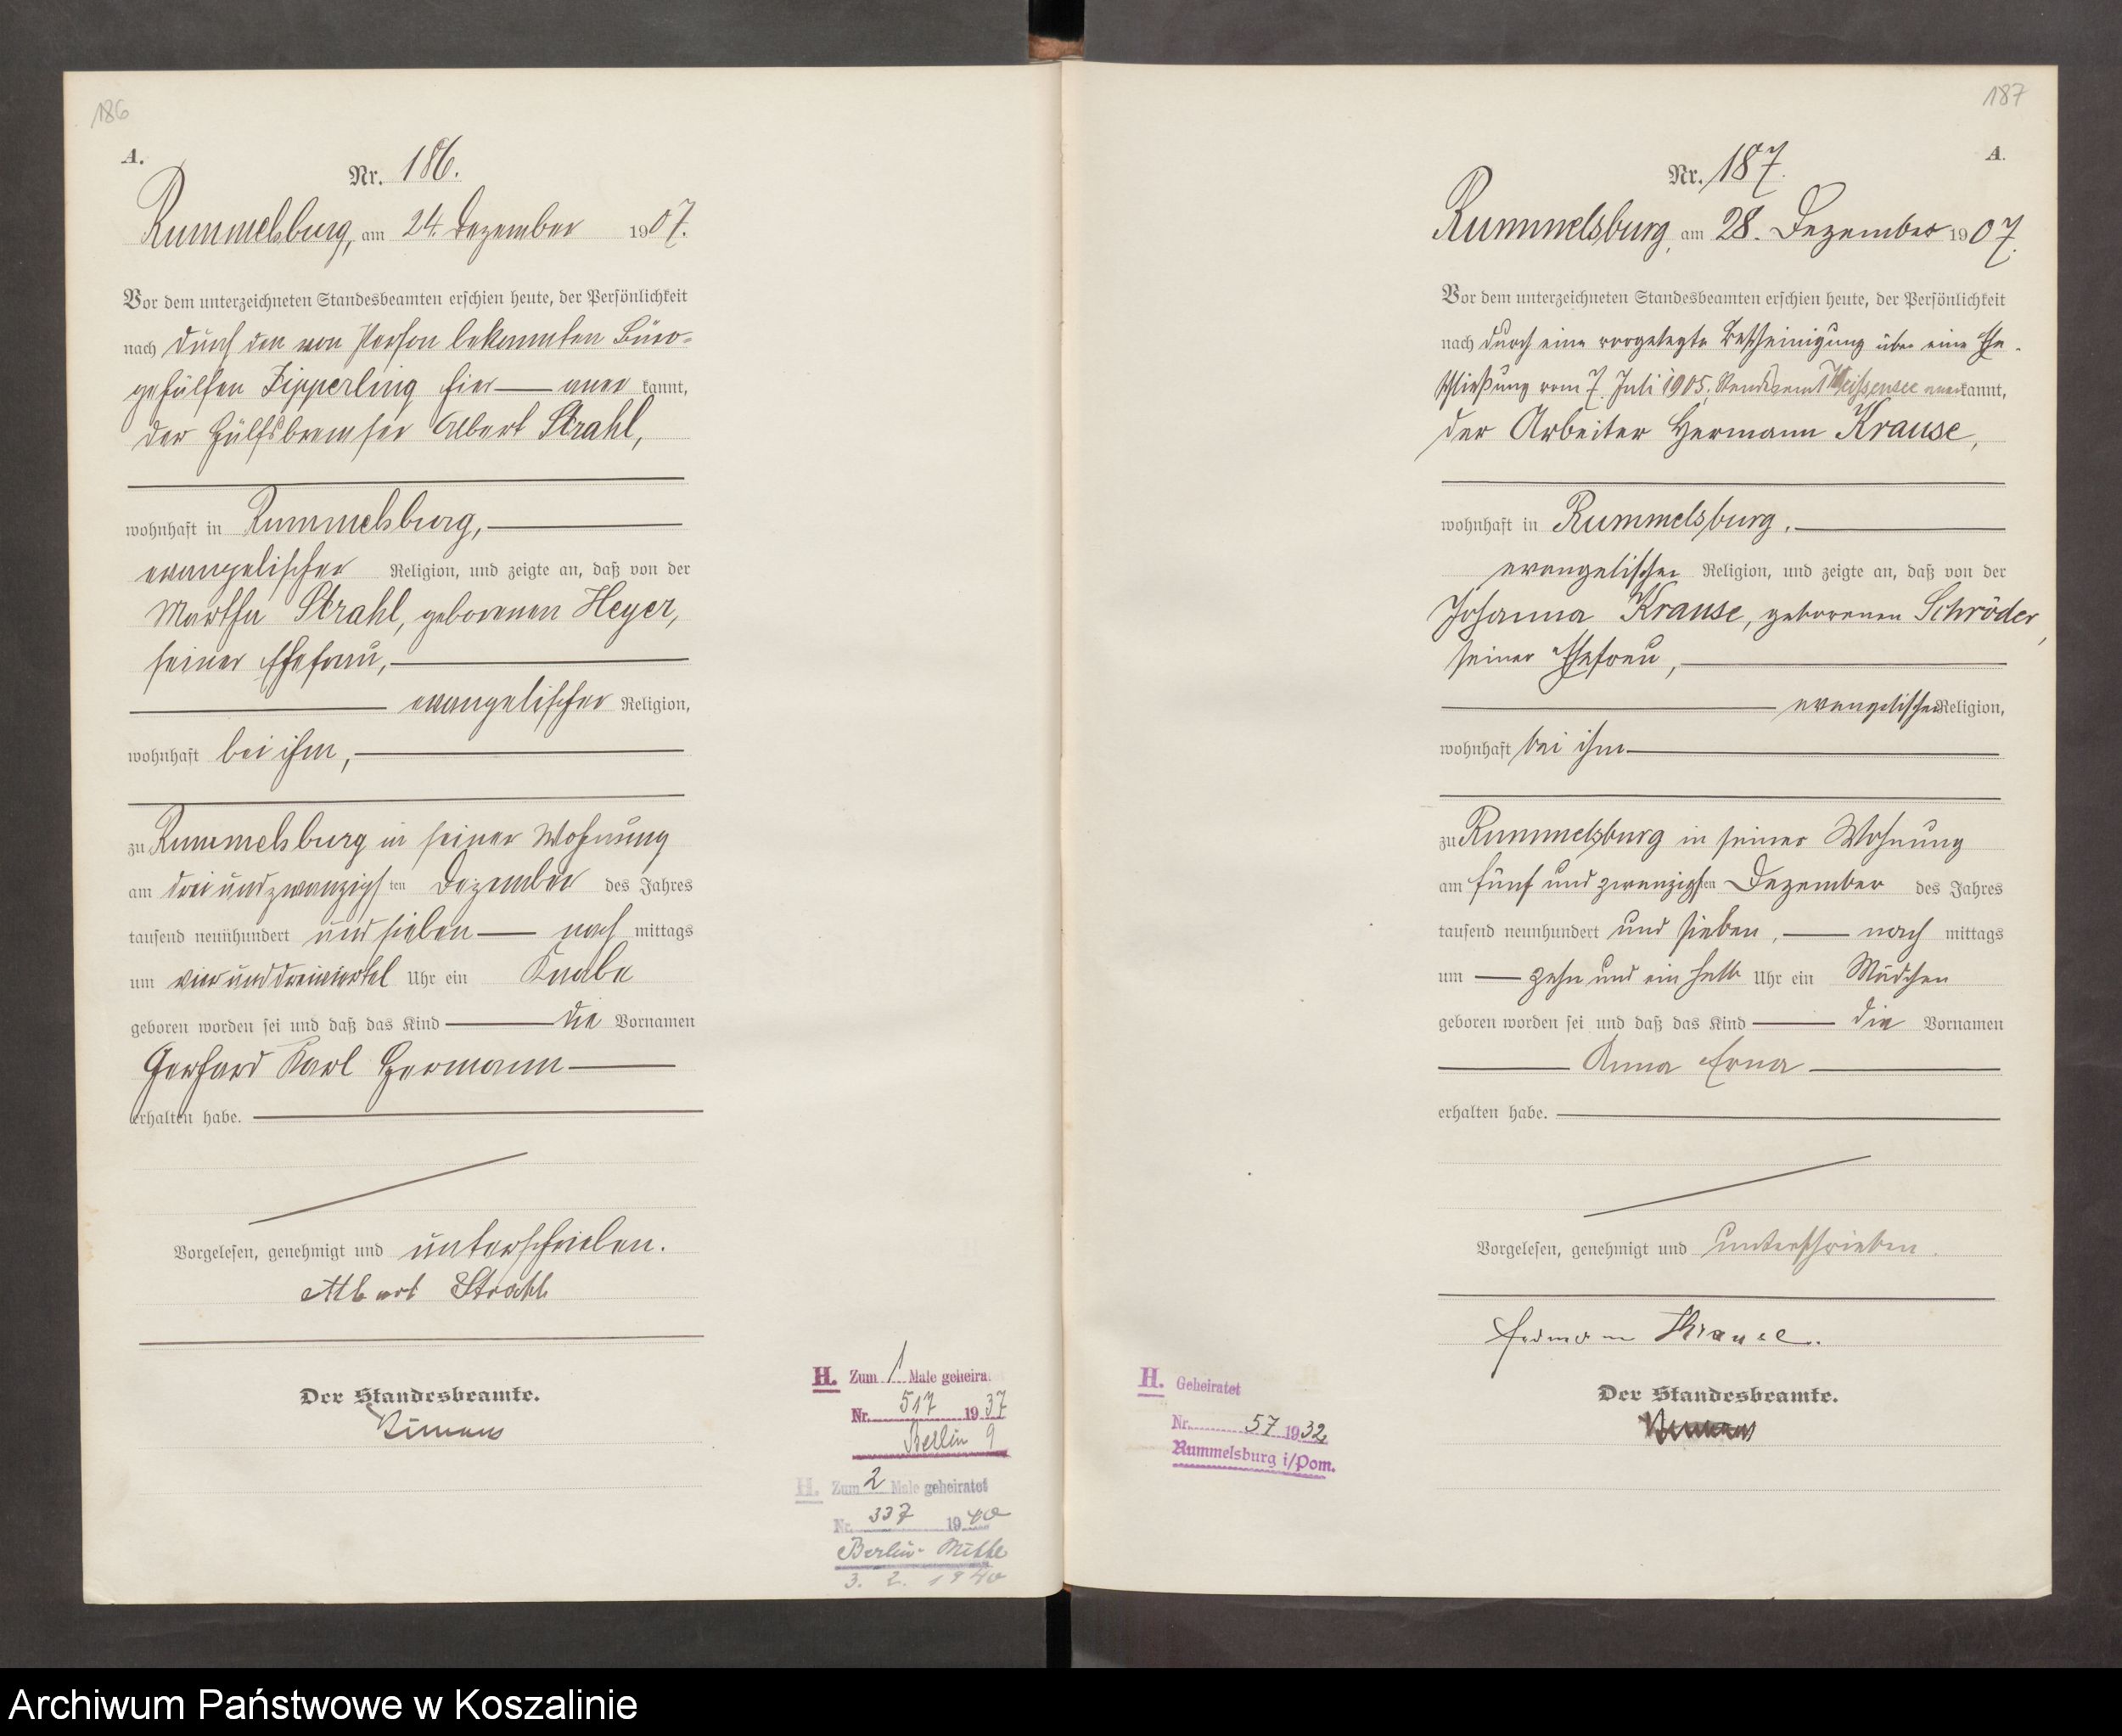 186
A.
Nr. 186.
Rummelsburg, am 24. Dezember 1907.
Vor dem unterzeichneten Standesbeamten erschien heute, der Persönlichkeit
nach durch den von Person bekannten Büro-
gehülfen Zipperling hier — aner kannt,
der Hülfsbremser Albert Strahl,
wohnhaft in Rummelsburg,
evangelischer Religion, und zeigte an, daß von der
Martha Strahl, geborenen Heyer,
seiner Ehefrau,
evangelischer Religion,
wohnhaft bei ihm,
zu Rummelsburg in seiner Wohnung
am drei und zwanzigsten Dezember des Jahres
tausend neunhundert und sieben — nach mittags
um vier und dreiviertel Uhr ein Knabe
geboren worden sei und daß das Kind — die Vornamen
Gerhard Karl Hermann
erhalten habe.
Vorgelesen, genehmigt und unterschrieben.
Albert Strahl
Der Standesbeamte.
H. Zum 1 Male geheira
Nr. 517 1937
Berlin 9
H. Zum 2 Male geheiratet
Nr. 337 1940
Berlin-Mitte
3. 2. 1940
187
A.
Nr. 187.
Rummelsburg, am 28. Dezember 1907.
Vor dem unterzeichneten Standesbeamten erschien heute, der Persönlichkeit
nach durch eine vorgelegte Bescheinigung über eine Ehe-
schließung vom 7. Juli 1905, Standesamt Weissensee anerkannt,
der Arbeiter Hermann Krause,
wohnhaft in Rummelsburg,
evangelischer Religion, und zeigte an, daß von der
Johanna Krause, geborenen Schröder,
seiner Ehefrau,
evangelischer Religion,
wohnhaft bei ihm
zu Rummelsburg in seiner Wohnung
am fünf und zwanzigsten Dezember des Jahres
tausend neunhundert und sieben, — nach mittags
um — zehn und ein halb Uhr ein Mädchen
geboren worden sei und daß das Kind — die Vornamen
Anna Erna
erhalten habe.
Vorgelesen, genehmigt und unterschrieben.
Hermann Krause.
Der Standesbeamte.
H. Geheiratet
Nr. 57 1932
Rummelsburg i/Pom.
Archiwum Państwowe w Koszalinie